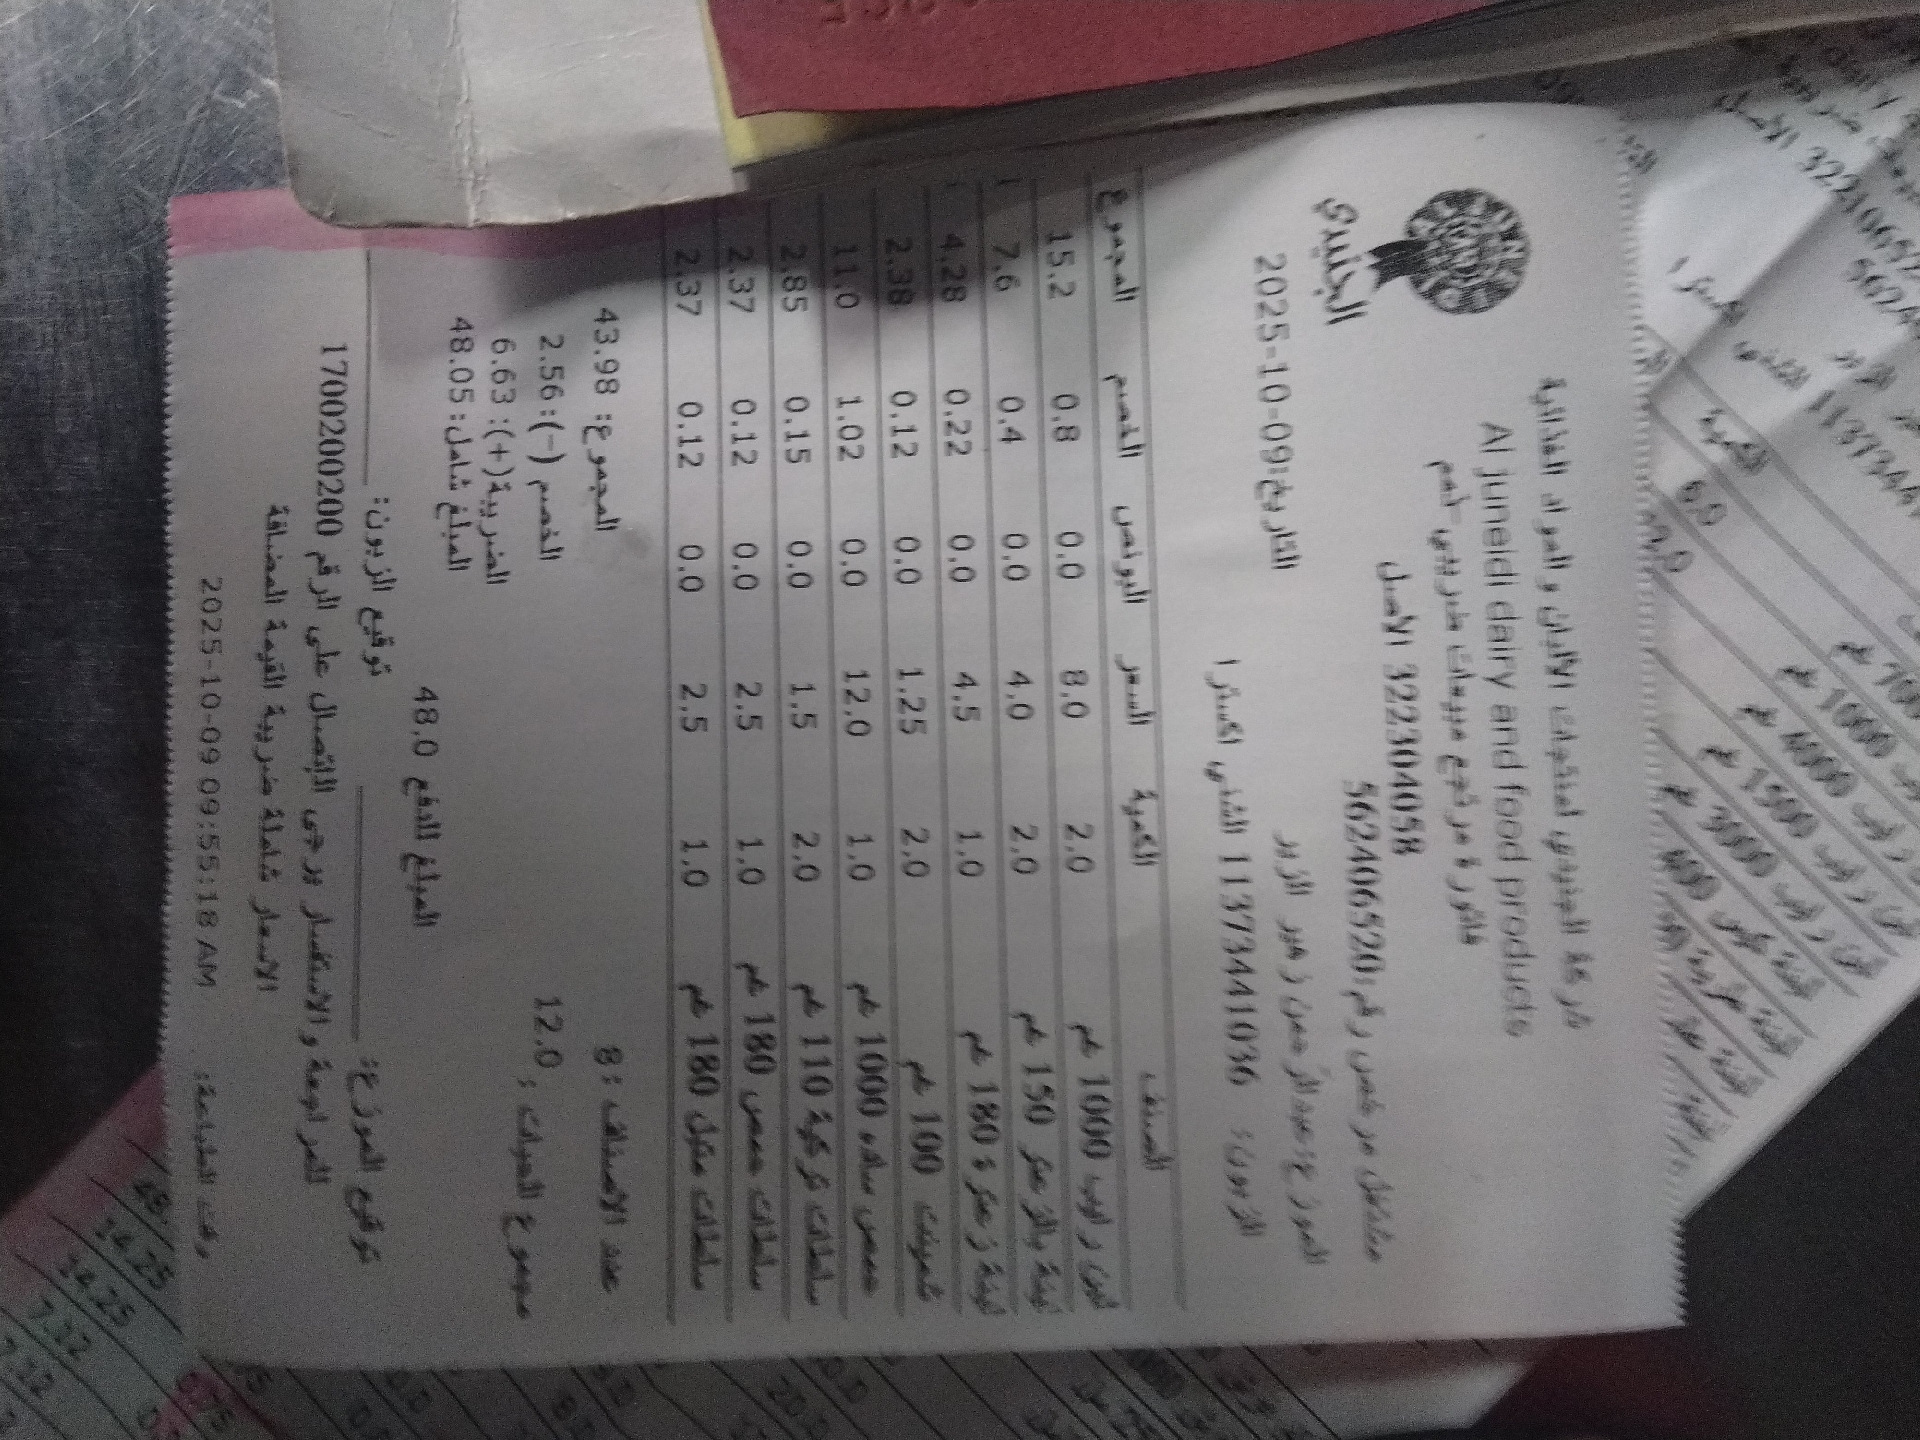 الجنيدي
شركة الجنيدي لمنتجات الألبان و المواد الغذائية
Al juneidi dairy and food products
فاتورة مرتجع مبيعات ضريبي-لحم
322304058 الأصل
مشتغل مرخص رقم:562406520
التاريخ:2025-10-09
الموزع:عبدالرحمن زهير الزير
الزبون: 1137344036 الشني اكسترا
الصنف الكمية السعر البونص الخصم المجموع
لبن رايب 1000 غم 2.0 8.0 0.0 0.8 15.2
لبنة بالزعتر 150 غم 2.0 4.0 0.0 0.4 7.6
لبنة زعترة 180 غم 1.0 4.5 0.0 0.22 4.28
شمينت 100 غم 2.0 1.25 0.0 0.12 2.38
حمص ساده 1000 غم 1.0 12.0 0.0 1.02 11.0
سلطات تركية 110 غم 2.0 1.5 0.0 0.15 2.85
سلطات حمص 180 غم 1.0 2.5 0.0 0.12 2.37
سلطات متبل 180 غم 1.0 2.5 0.0 0.12 2.37
عدد الأصناف : 8 المجموع: 43.98
مجموع الحبات : 12.0 الخصم (-): 2.56
الضريبة(+): 6.63
المبلغ شامل: 48.05
المبلغ للدفع 48.0
توقيع الموزع: توقيع الزبون:
للمراجعة والاستفسار يرجى الاتصال على الرقم 1700200200
الاسعار شاملة ضريبة القيمة المضافة
وقت الطباعة: 2025-10-09 09:55:18 AM